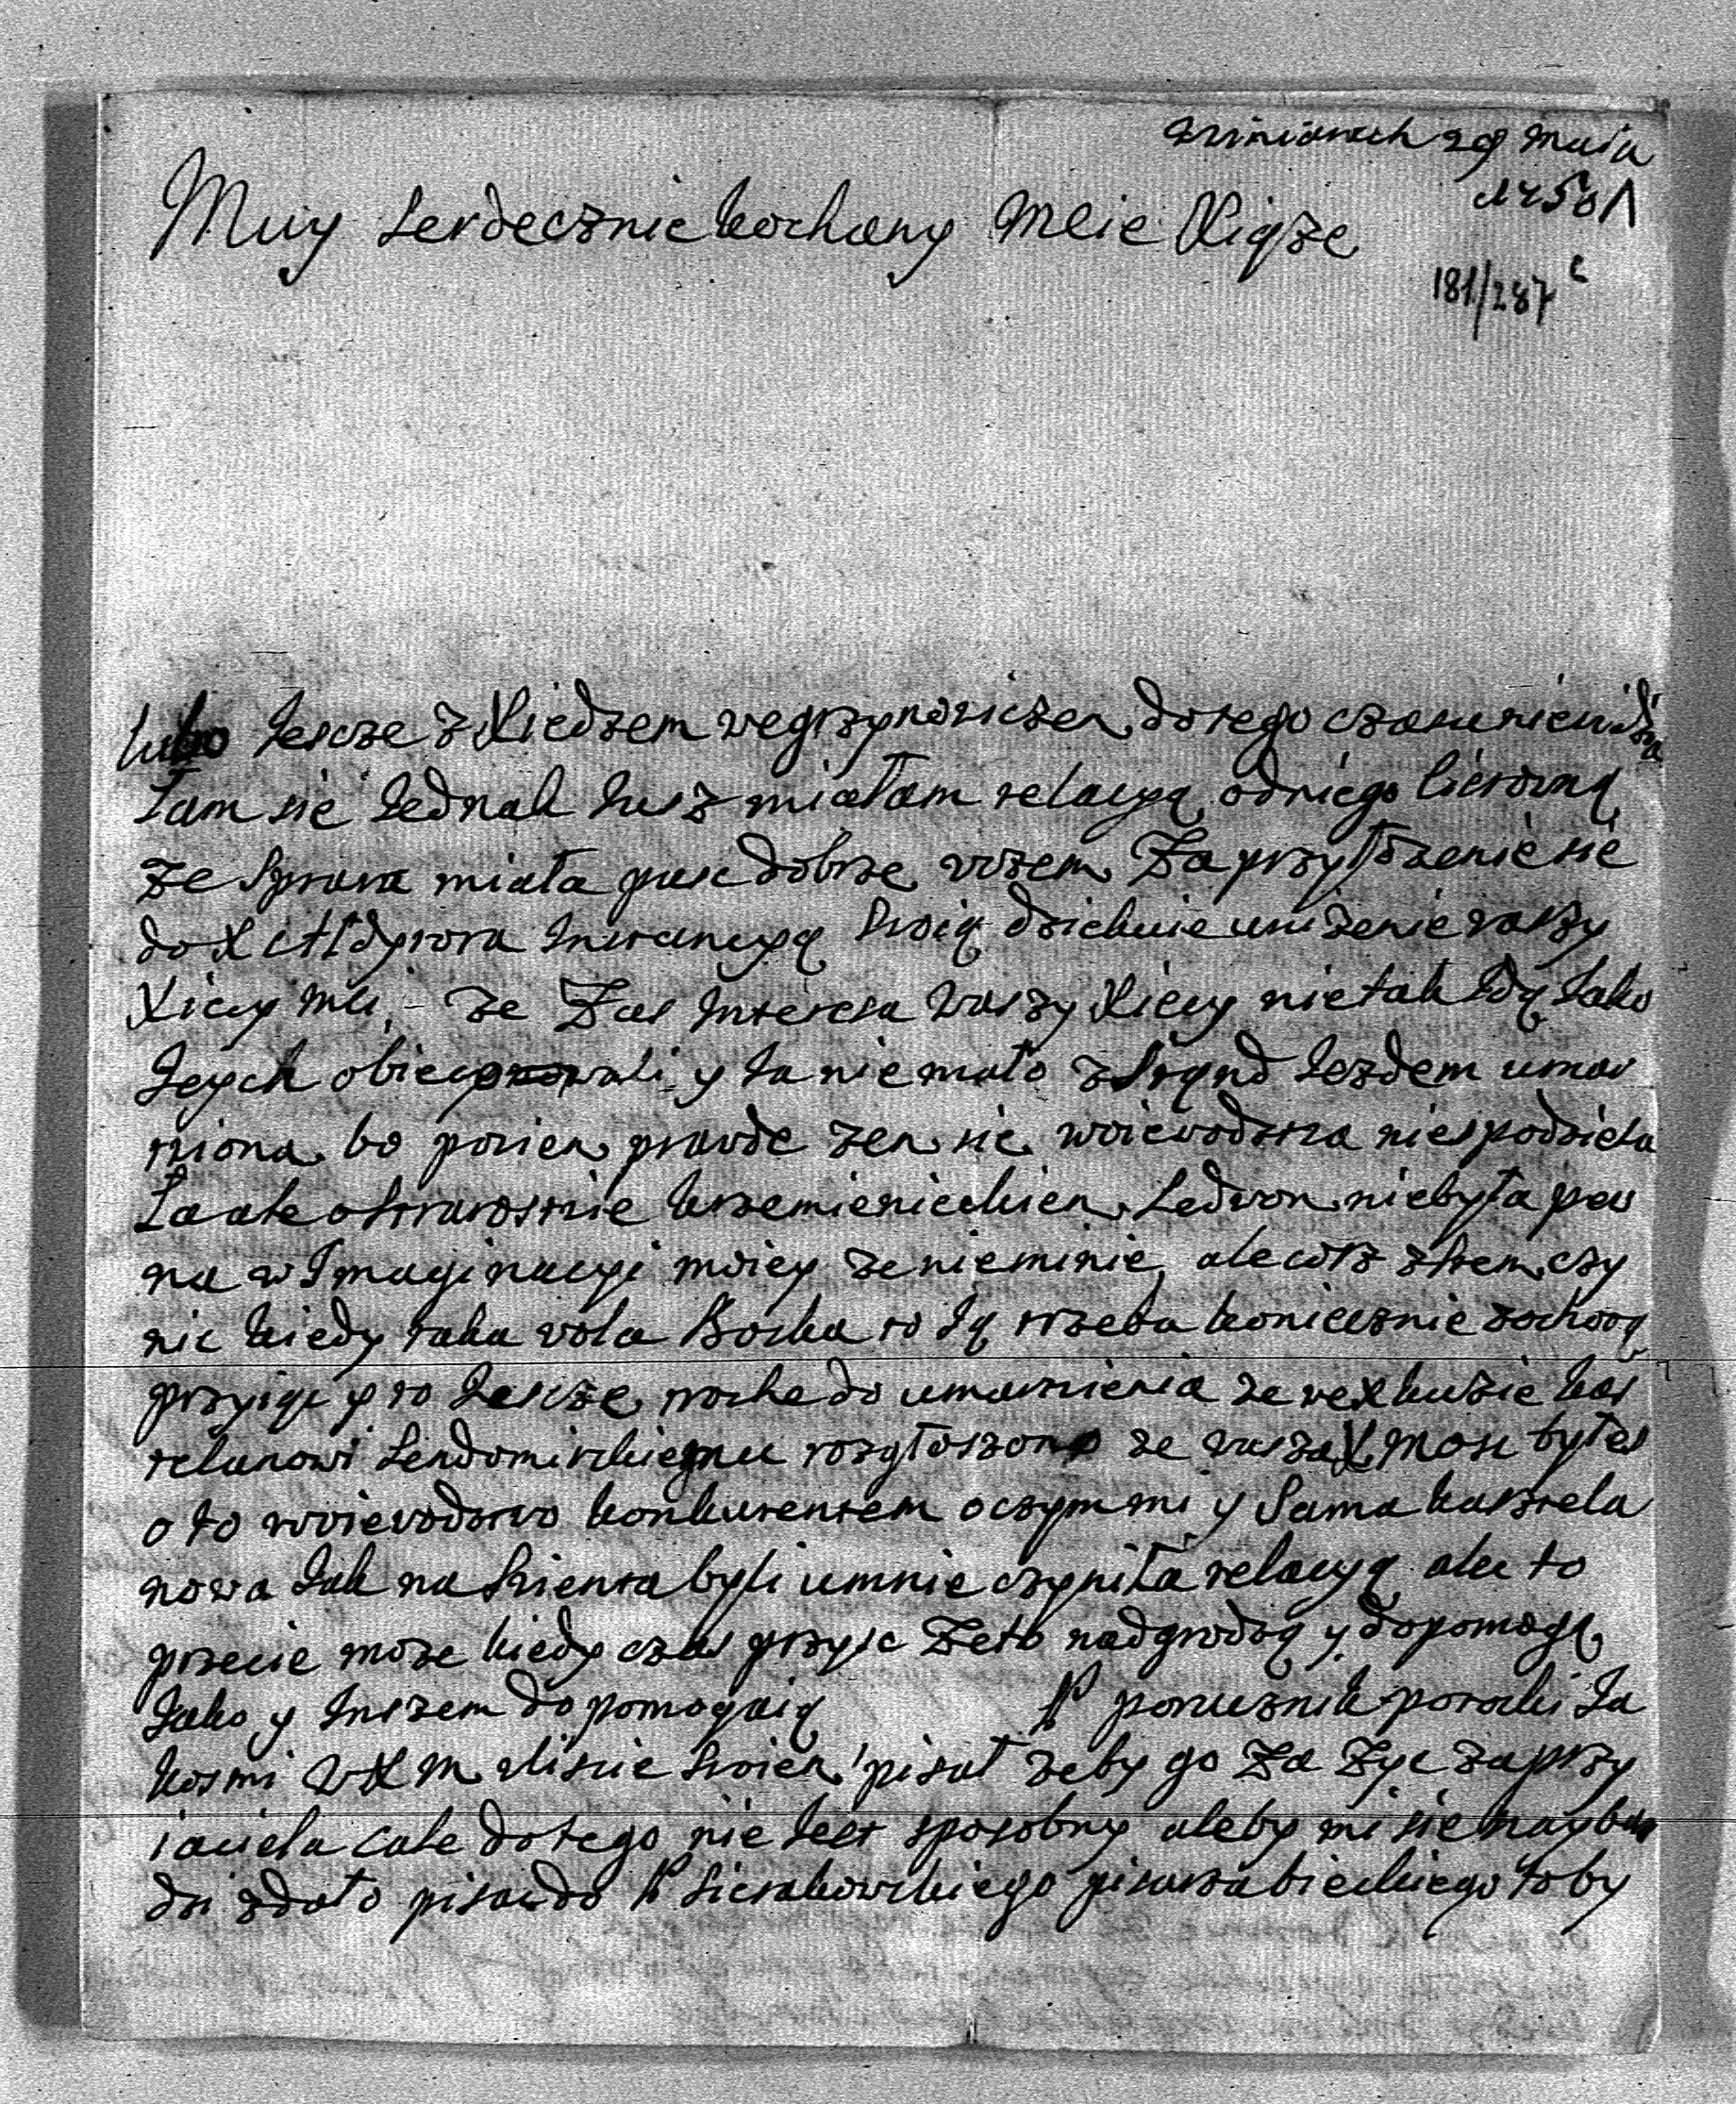 29 Maia
Muy Serdecznie kochany Mcie Xiąże
181/287
lubo Iescze z Xiedzem wegrzynowiczem dotego czasu niewidzia
Łam sie Iednak Iusz miałam relacyą odniego listowną
ze Sprawa miała pusc dobrze wzem Za przyłozenie sie
do X Instancyą Swoią dziekuie unizenie waszy
Xiecy Mci, - ze Zas Interesa Waszy Xiecy nietak Idą Iako
Ieych obiecowali y Ia nie mało zStąnd Iezdem umar
twiona bo powiem prawde zem sie woiewodztwa niespodziewa
Ła ale o Starostwie krzemienieckiem Ledwom niebyła pew
na w Imaginacyi moiey ze nieminie, ale cosz ztem czy
nic kiedy taka wola Boska to Ią trzeba koniecznie zochotą
przyiąc y to Iescze troche do umartwienia ze wexkuzie kas
telanowi Sendomirskiemu rozgłoszono ze wasza X Mosc byłes
o to woiewodztwo konkurentem oczym mi y Sama kasztela
nowa Iak na Swienta byli umnie czyniła relacyą ale to
przecie moze kiedy czas przysc Zeto nadgrodzą y dopomogą
Iako y Inszem dopomagaią P porucznik potocki Ia
kosmi W X M wliscie Swoiem pisał zeby go Za Zyc zaprzy
iaciela cale dotego nie Iest sposobny aleby mi sie naybar
dzi zdało pisac do P Sierakowskiego pisarza bieckiego toby